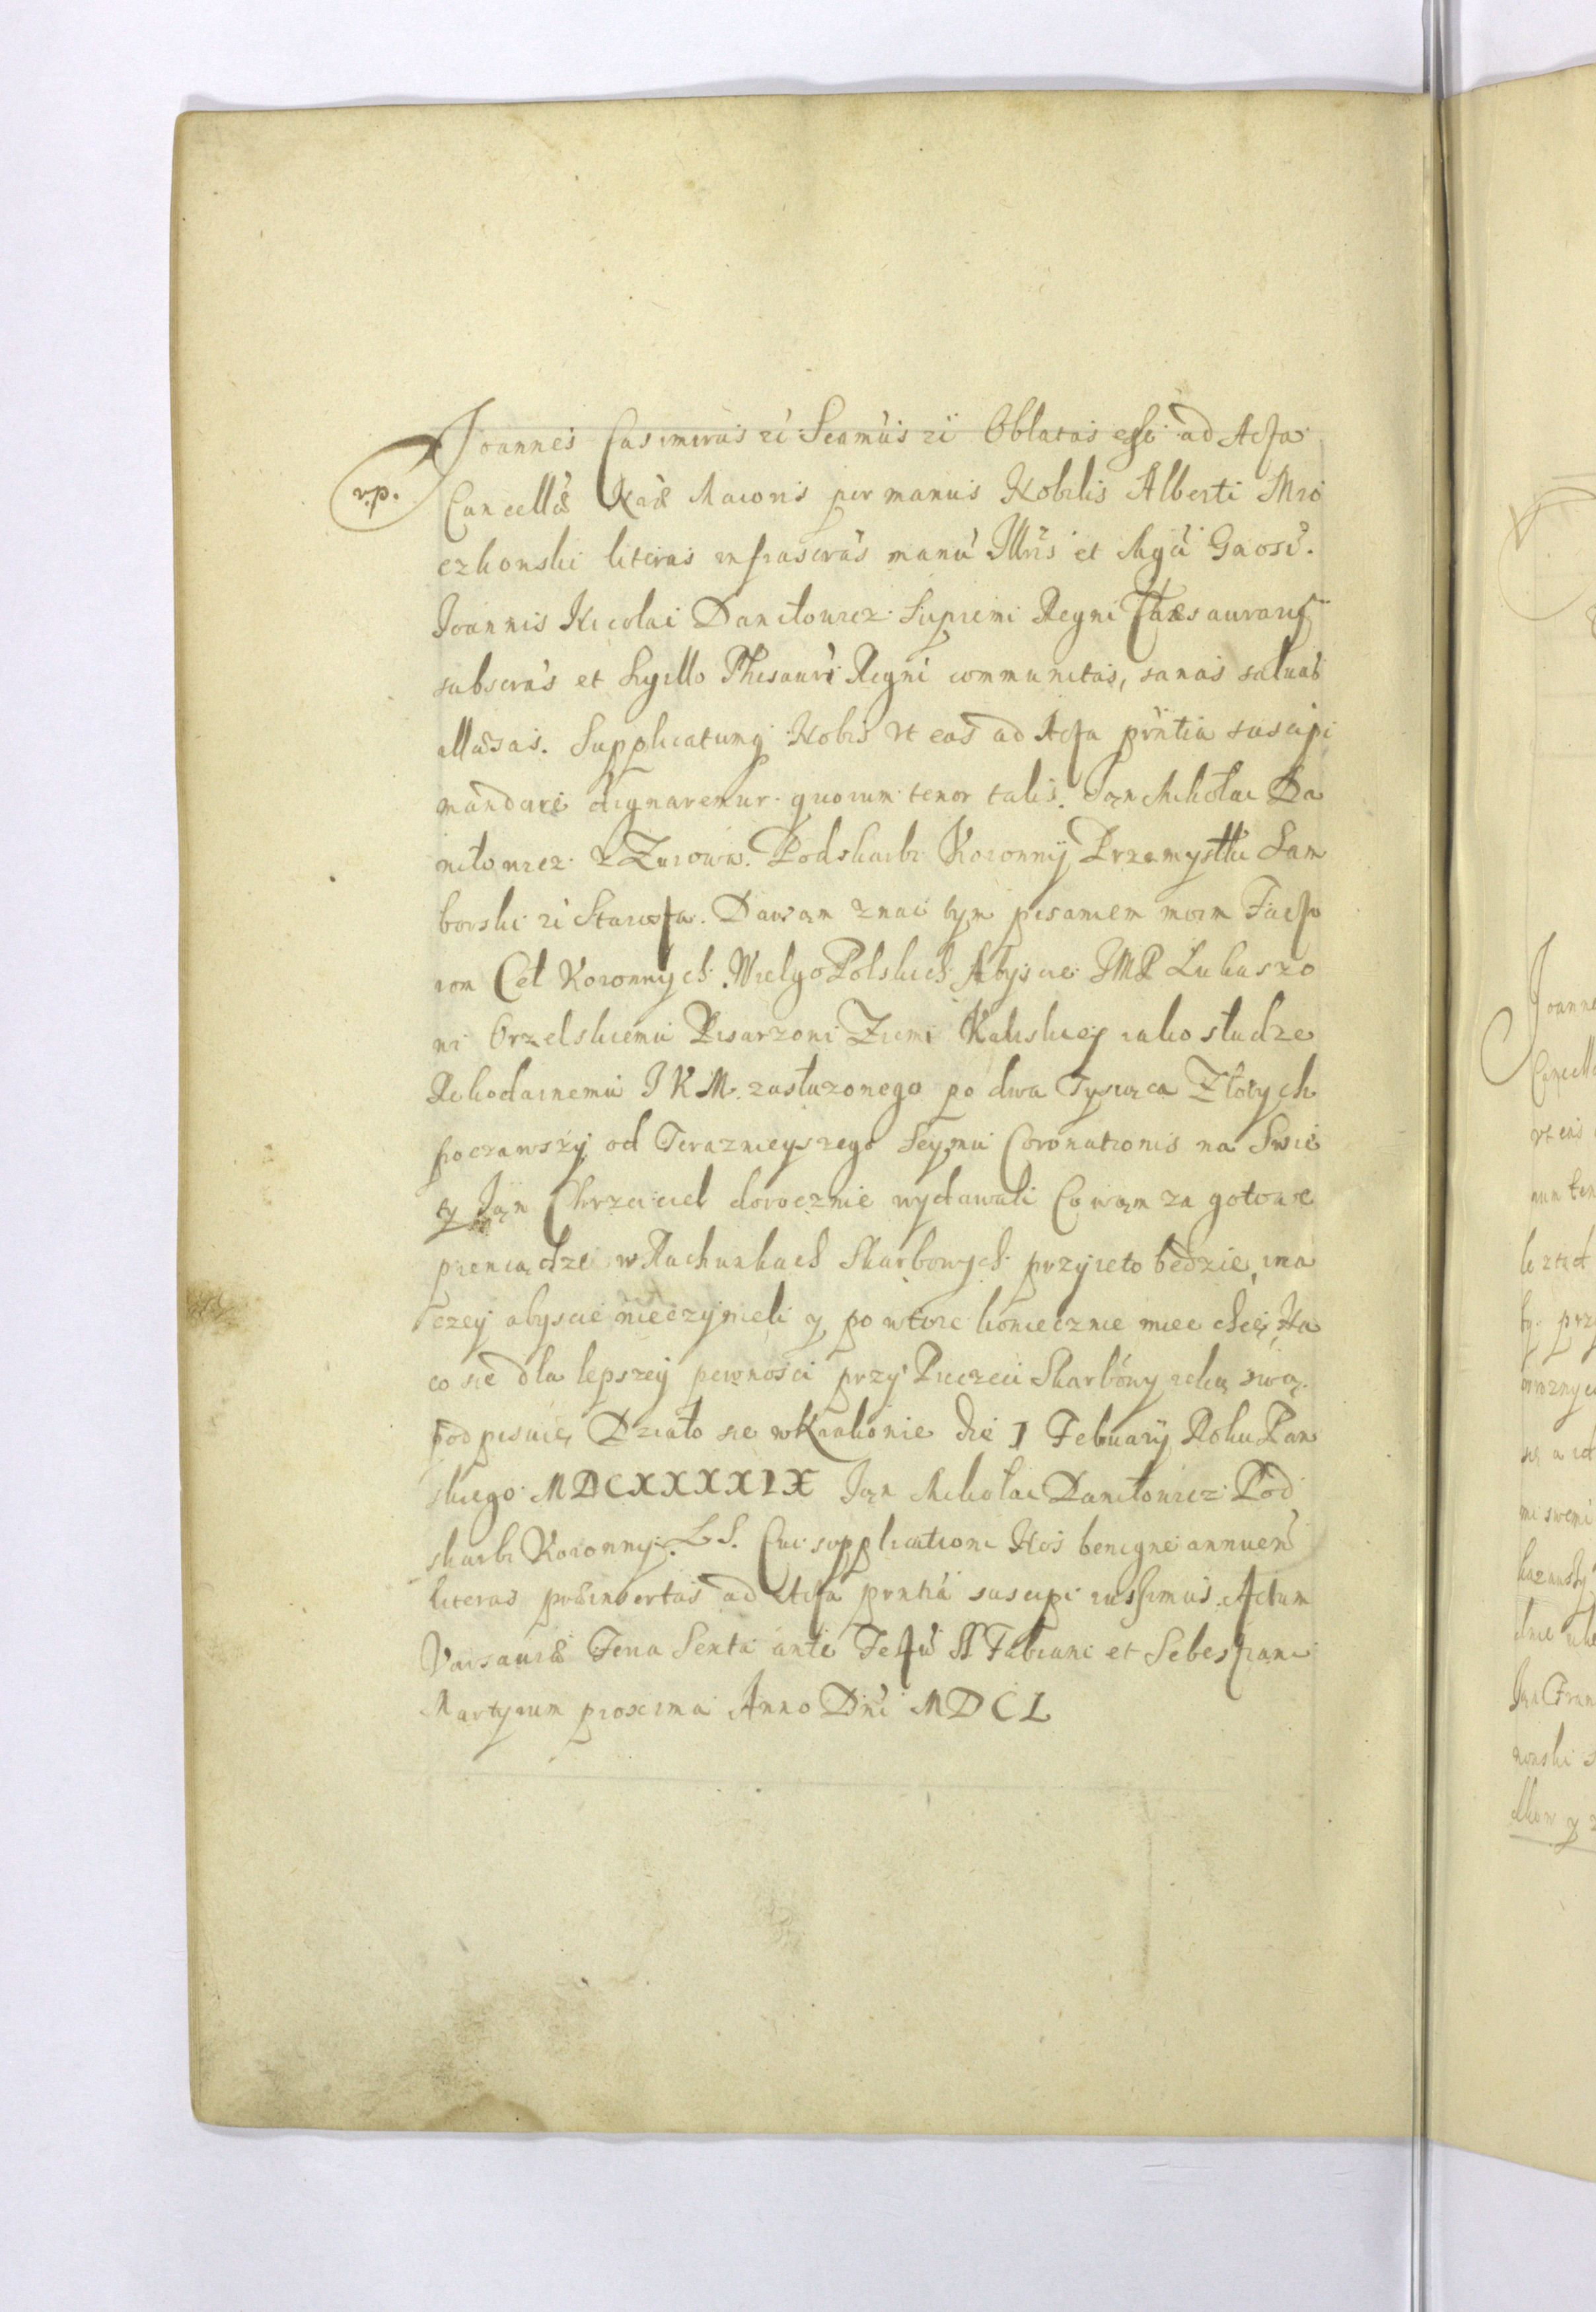 Joannes Casimirus rċ Seamus rċ Oblatas esse ad Acta
r.p.
Cancellæ Nræ Maioris per manus Nobilis Alberti Mro
czkonski literas infrascras manu Illris et Mgci Gnosi.
Joannis Nicolai Daniłowicz Supremi Regni Thæsaurarij
subscras et Sygillo Thesauri Regni communitas, sanas saluas
illæsas. Supplicatumq Nobis vt eas ad Acta prñtia suscipi
mandare dignaremur. quorum tenor talis. Jan Mikołai Da
niłowicz z Zurowa. Podskarbi Koronnÿ Przemyslki Sam
borski rċ Starosta. Dawam znac tym pisaniem moim Facto
rom Ceł Koronnych. WielgoPolskich Abyscie JMP Lukaszo
wi Orzelskiemu Pisarzowi Ziemi Kaliskiej iako słudze
Rekodainemu J K M. zasłuzonego po dwa Tysiąca Złotych
począwszy od Teraznieyszego Seymu Coronationis na Swię
ty Jąn Chrzciciel dorocznie wydawali Co wąm za gotowe
pieniądze w Rachunkach Skarbowych przyieto będzie, ina
czey abyscie nieczynieli y powtore koniecznie miec chcę, Na
co sie dla lepszey pewnosci przy Pieczęci Skarbowy ręką swą
podpisuię, Działo sie w Krakowie die 1 February Roku Pan
skiego MDCXXXXIX Jąn Mikołai Daniłowicz Pod
skarbi Koronny. L S. Cui supplicationi Nos benigne annuen
literas præinsertas ad Acta prntia suscipi iussimus. Actum
Varsauiæ Feria Sexta ante Festu SS Fabiani et Sebestiani
Martyrum proxima Anno Dni MDCL
Joanne